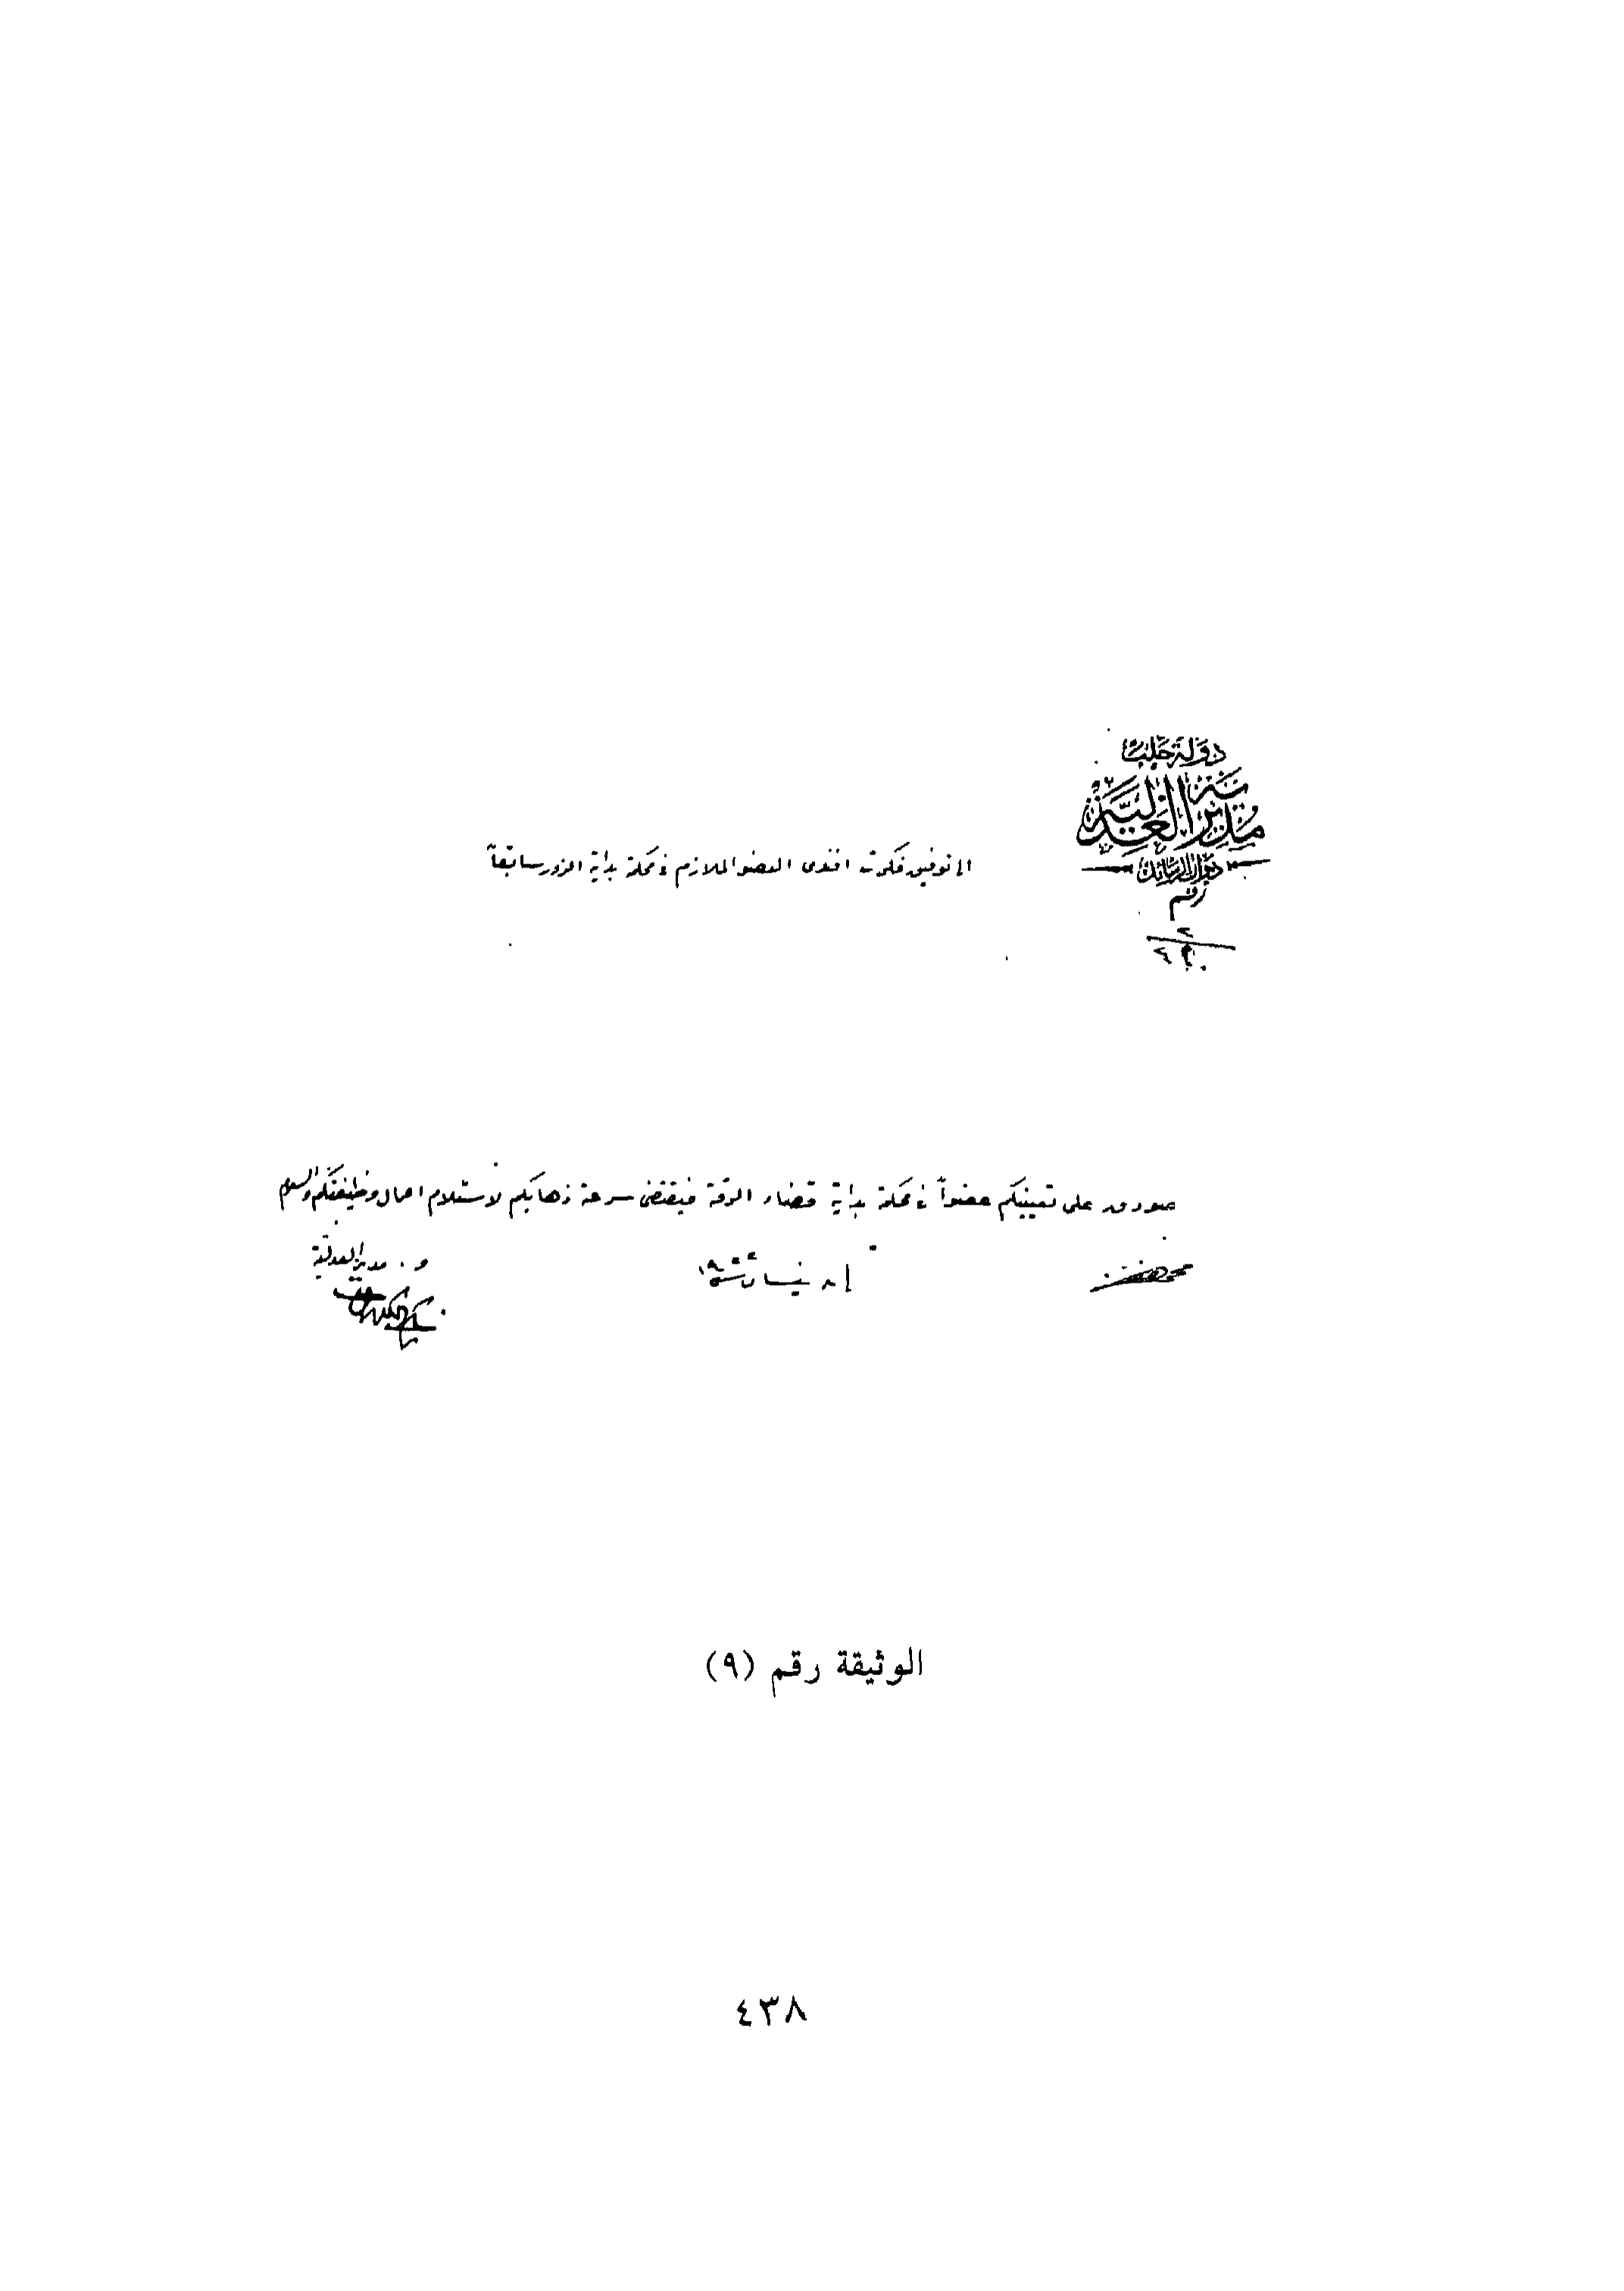 دولة حلب
مديرية العدلية
ديوان الرسائل
رقم
الى توفيق فكرت افندى العضو الملازم في محكمة بداية الزور سابقاً
صودق على تعيينكم عضواً في محكمة بداية قضاء الرقة فيقتضى سرعة ذهابكم لاستلام اعمال وظيفتكم والسلام
نيسان سنة
و . مدير العدلية
الوثيقة رقم (٩)
٤٣٨